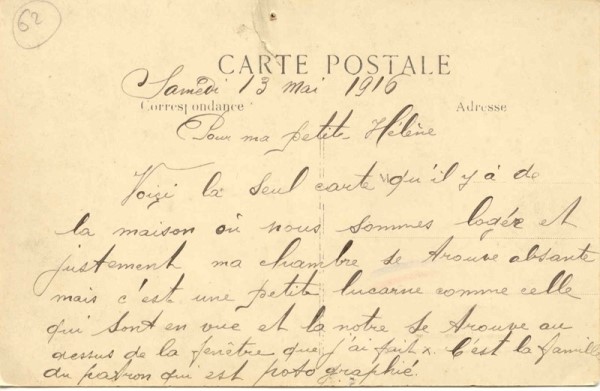 62
CARTE POSTALE
Samedi 13 Mai 1916
Correspondance
Adresse
Pour ma petite Hélène
Voiçi la seul carte qu'il y à de
la maison où nous sommes logér et
justement ma chambre se trouve absante
mais c'est une petite lucarne comme celle
qui sont en vue et la notre se trouve au
dessus de la fenêtre que j'ai fait x. C'est la famille
du patron qui est potographié.